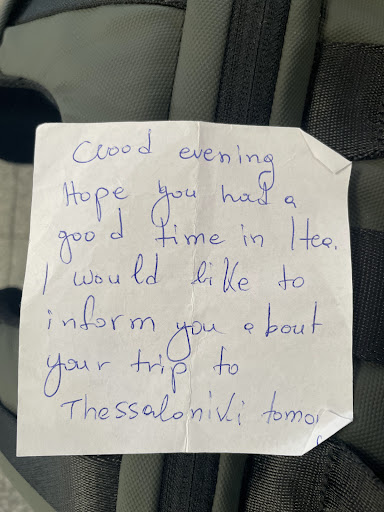 Good evening
Hope you had a
good time in Itea.
I would like to
inform you about
your trip to
Thessaloniki tomo